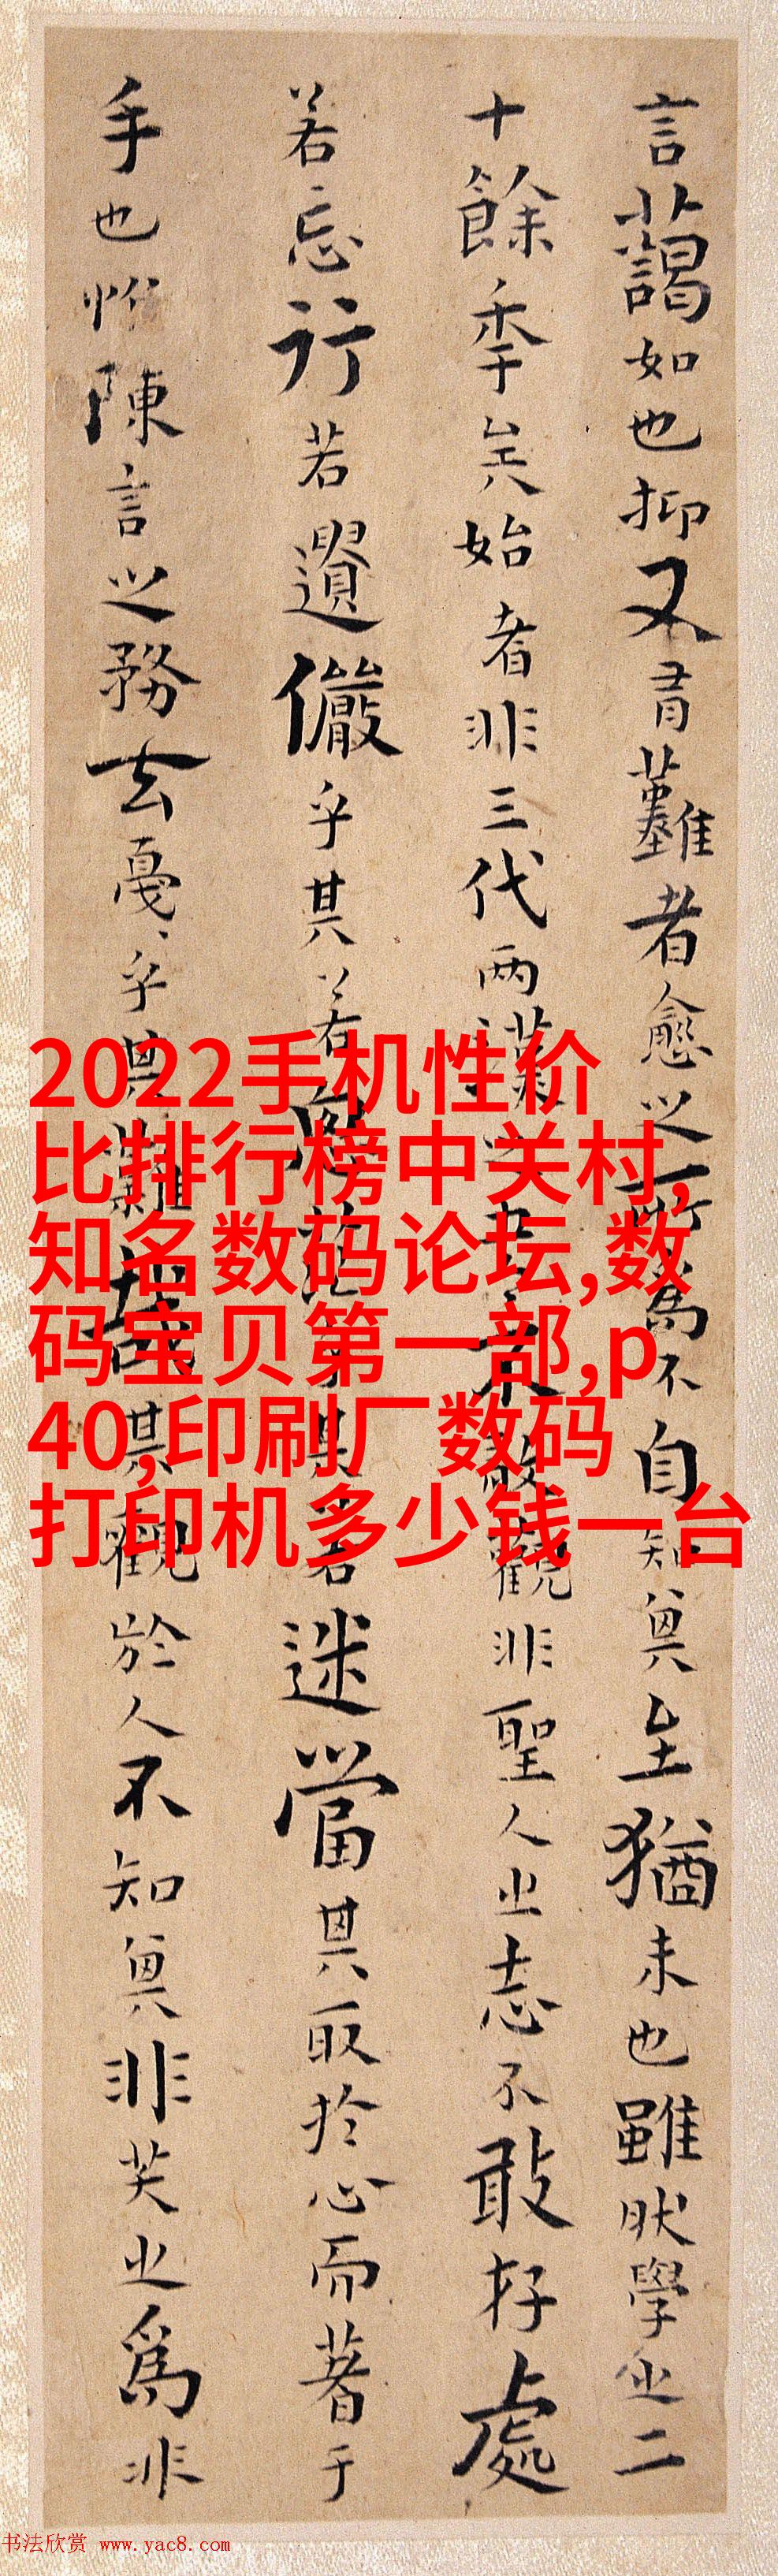 言藹如也抑又有難者愈之所為不自知其至猶未也雖然學之二
十餘年矣始者非三代两漢之書不敢觀非聖人之志不敢存處
若忘行若遺儼乎其若思茫乎其若迷當其取於心而著于
手也惟陳言之務去戛戛乎其難哉其觀於人不知其非笑之為非
2022手机性价
比排行榜中关村,
知名数码论坛,数
码宝贝第一部,p
40,印刷厂数码
打印机多少钱一台
书法欣赏 www.yac8.com